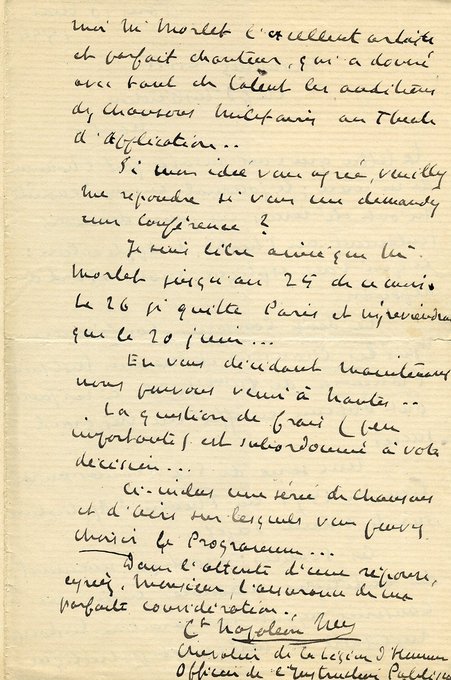 moi Mr Morlet l'excellent artiste
et parfait chanteur, qui a donné
avec tant de talent les auditions
des chansons militaires au Théâtre
d'Application..
Si mon idée vous agrée, veuillez
me répondre si vous me demandez
une Conférence ?
Je suis libre ainsi que Mr.
Morlet jusqu'au 25 de ce mois.
Le 26 je quitte Paris et n'y reviendrai
que le 20 juin...
En vous décidant maintenant
nous pouvons venir à Nantes..
La question de frais (peu
importante) est subordonné à votre
décision...
Ci-inclus une série de chansons
et d'airs sur lesquels vous pouvez
choisir le Programme...
Dans l'attente d'une réponse,
agréez, Monsieur, l'assurance de ma
parfaite considération..
Ct Napoléon Ney
Chevalier de la Légion d'Honneur
Officier de l'Instruction Publique